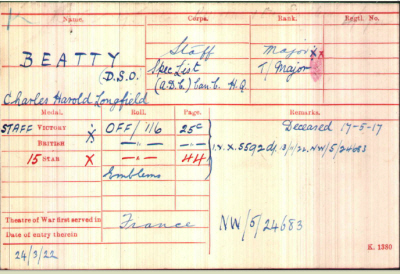 Name. Corps. Rank. Regtl. No.
BEATTY Staff Major xx
(D.S.O. Spec List T/Major
(A.D.C.) Can. C. H.Q.
Charles Harold Longfield
Medal. Roll. Page. Remarks.
STAFF VICTORY X OFF/116 25c Deceased 17-5-17
BRITISH —"— —"— NW/5/24683
15 STAR X —"— 44
Emblems
Theatre of War first served in France NW/5/24683
Date of entry therein
K. 1380
24/3/22